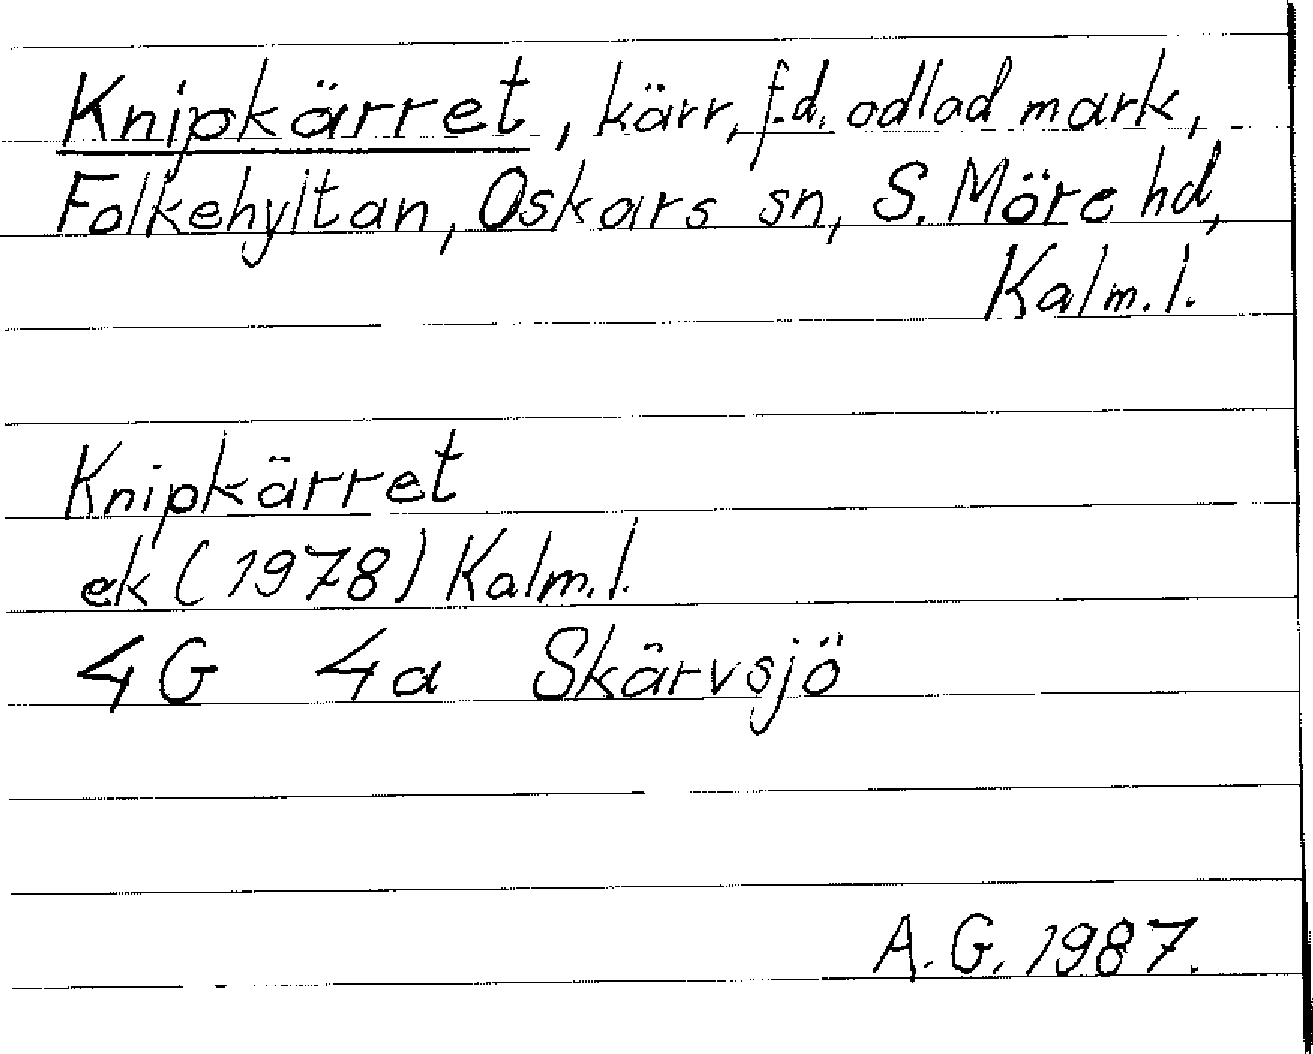 Knipkärret, kärr, f.d. odlad mark,
Folkehyltan, Oskars sn, S. Möre hd,
Kalm. l.
Knipkärret
ek (1978) Kalm. l.
4G 4a Skärvsjö
A. G. 1987.